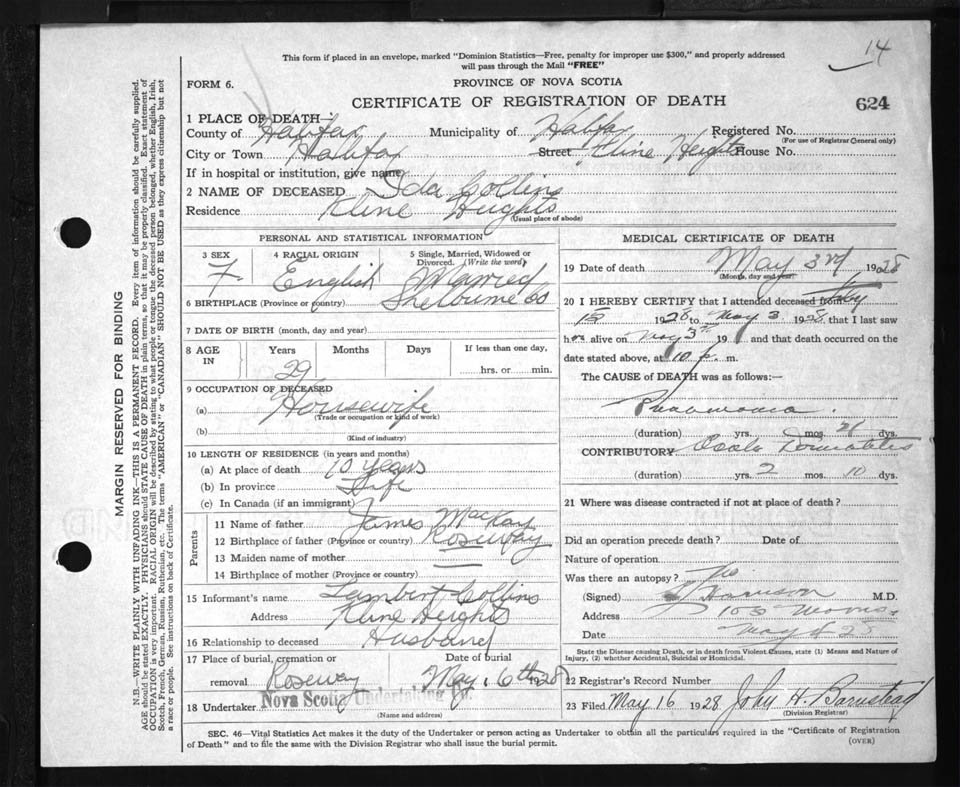 14
This form if placed in an envelope, marked "Dominion Statistics—Free, penalty for improper use $300," and properly addressed
will pass through the Mail "FREE"
FORM 6.
PROVINCE OF NOVA SCOTIA
CERTIFICATE OF REGISTRATION OF DEATH
624
1 PLACE OF DEATH—
County of Halifax Municipality of Halifax Registered No.
(For use of Registrar General only)
City or Town Halifax Street Kline Heights House No.
If in hospital or institution, give name
2 NAME OF DECEASED Ida Collins
Residence Kline Heights
(Usual place of abode)
PERSONAL AND STATISTICAL INFORMATION
3 SEX 4 RACIAL ORIGIN 5 Single, Married, Widowed or
Divorced. (Write the word)
F English Married
6 BIRTHPLACE (Province or country) Shelburne Co
7 DATE OF BIRTH (month, day and year)
8 AGE IN Years Months Days If less than one day,
29 hrs. or min.
9 OCCUPATION OF DECEASED
(a) Housewife
(Trade or occupation or kind of work)
(b)
(Kind of industry)
10 LENGTH OF RESIDENCE (in years and months)
(a) At place of death 10 years
(b) In province Life
(c) In Canada (if an immigrant)
Parents
11 Name of father James MacKay
12 Birthplace of father (Province or country) Roseway
13 Maiden name of mother —
14 Birthplace of mother (Province or country) —
15 Informant's name Lambert Collins
Address Kline Heights
16 Relationship to deceased Husband
17 Place of burial, cremation or Date of burial
removal Roseway May 6th 1928
18 Undertaker Nova Scotia Undertaking
(Name and address)
MEDICAL CERTIFICATE OF DEATH
19 Date of death May 3rd 1928
(Month, day and year)
20 I HEREBY CERTIFY that I attended deceased from
15 1928 to May 3 1928 that I last saw
h alive on May 3rd 19 and that death occurred on the
date stated above, at 10 p. m.
The CAUSE of DEATH was as follows:—
Pneumonia.
(duration) yrs. mos. 21 dys.
CONTRIBUTORY
(duration) yrs. 2 mos. 10 dys.
21 Where was disease contracted if not at place of death?
Did an operation precede death? Date of
Nature of operation
Was there an autopsy? No
(Signed) Harrison M.D.
Address 103 Morris
Date May 28
State the Disease causing Death, or in death from Violent Causes, state (1) Means and Nature of
Injury, (2) whether Accidental, Suicidal or Homicidal.
22 Registrar's Record Number
23 Filed May 16 1928 John H. Barnstead
(Division Registrar)
SEC. 46—Vital Statistics Act makes it the duty of the Undertaker or person acting as Undertaker to obtain all the particulars required in the "Certificate of Registration
of Death" and to file the same with the Division Registrar who shall issue the burial permit.
(OVER)
MARGIN RESERVED FOR BINDING
N.B.—WRITE PLAINLY WITH UNFADING INK—THIS IS A PERMANENT RECORD. Every item of information should be carefully supplied.
AGE should be stated EXACTLY. PHYSICIANS should STATE CAUSE OF DEATH in plain terms, so that it may be properly classified. Exact statement of
OCCUPATION is very important. RACIAL ORIGIN will be described by stating to what people or tongue the deceased person belonged, whether English, Irish,
Scotch, French, German, Russian, Ruthenian, etc. The terms "AMERICAN" or "CANADIAN" SHOULD NOT BE USED as they express citizenship but not
a race or people. See instructions on back of Certificate.